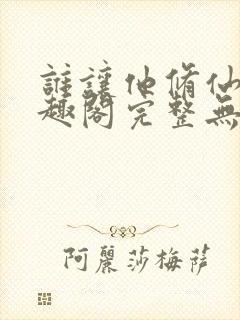 誰讓他脩仙
趣閣完整無
阿麗莎梅萨